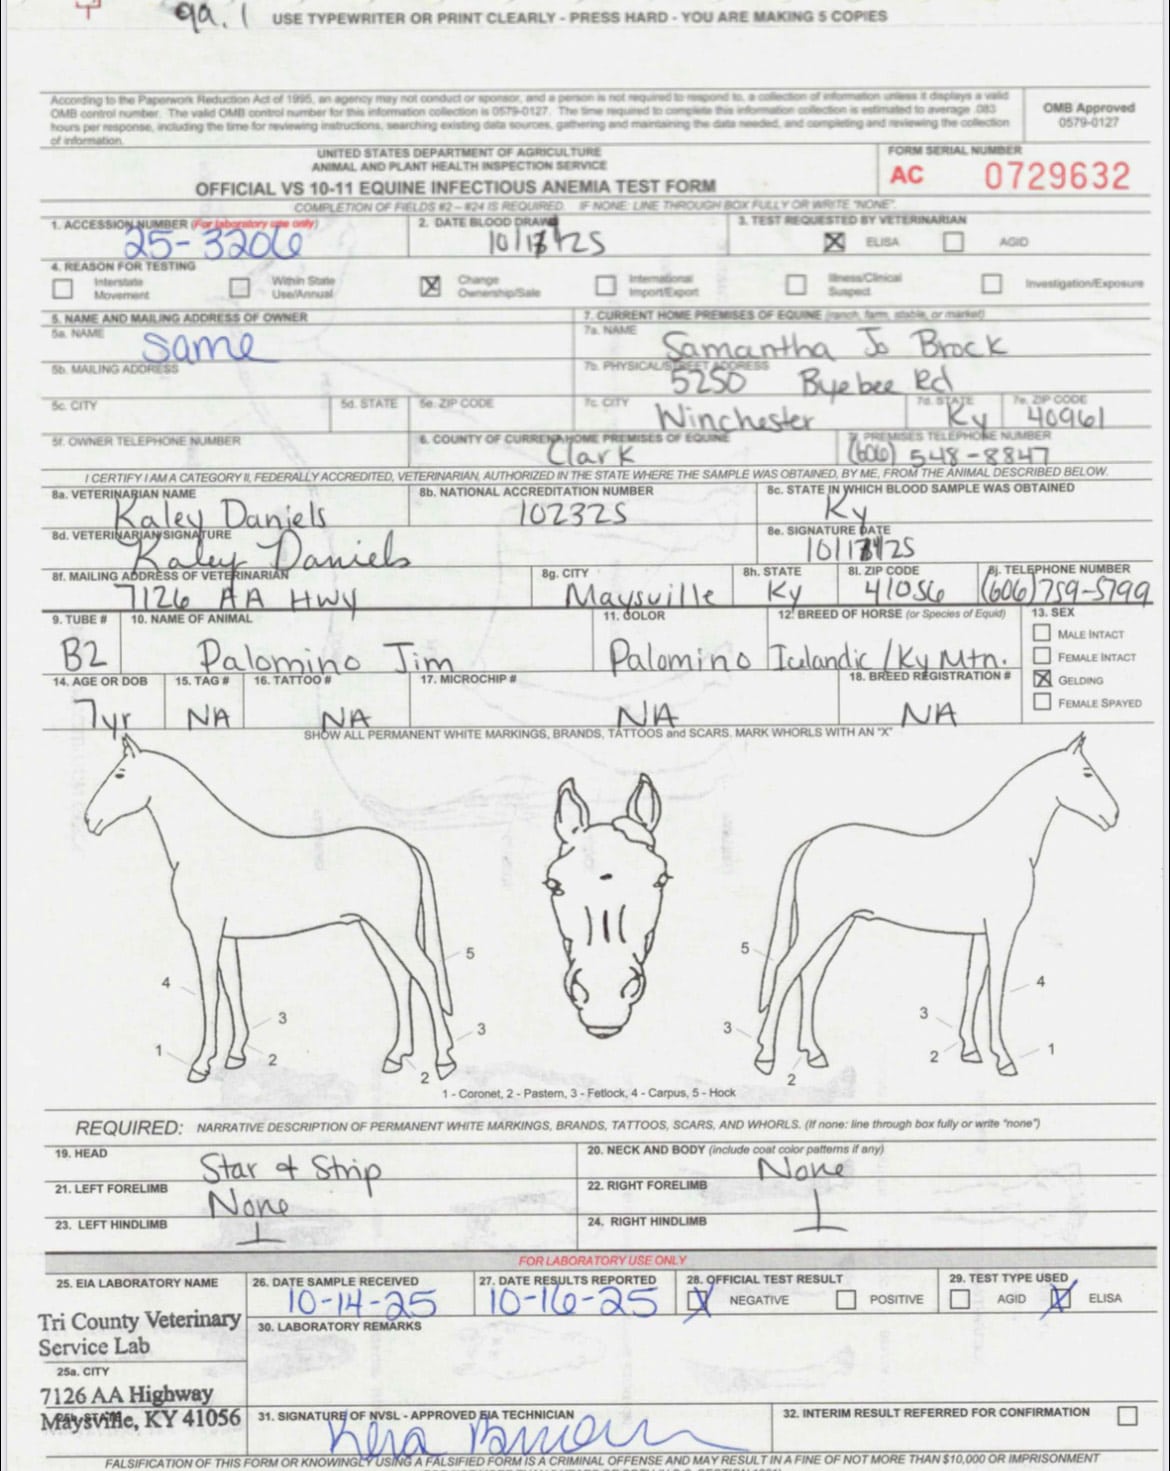 9a. 1 USE TYPEWRITER OR PRINT CLEARLY - PRESS HARD - YOU ARE MAKING 5 COPIES
According to the Paperwork Reduction Act of 1995, an agency may not conduct or sponsor, and a person is not required to respond to, a collection of information unless it displays a valid
OMB control number. The valid OMB control number for this information collection is 0579-0127. The time required to complete this information collection is estimated to average .083
hours per response, including the time for reviewing instructions, searching existing data sources, gathering and maintaining the data needed, and completing and reviewing the collection
of information.
OMB Approved
0579-0127
UNITED STATES DEPARTMENT OF AGRICULTURE
ANIMAL AND PLANT HEALTH INSPECTION SERVICE
OFFICIAL VS 10-11 EQUINE INFECTIOUS ANEMIA TEST FORM
FORM SERIAL NUMBER
AC 0729632
COMPLETION OF FIELDS #2 – #24 IS REQUIRED. IF NONE: LINE THROUGH BOX FULLY OR WRITE "NONE".
1. ACCESSION NUMBER (For laboratory use only)
25-3206
2. DATE BLOOD DRAWN
3. TEST REQUESTED BY VETERINARIAN
ELISA AGID
4. REASON FOR TESTING
Interstate Movement
Within State Use/Annual
Change Ownership/Sale
International Import/Export
Illness/Clinical Suspect
Investigation/Exposure
5. NAME AND MAILING ADDRESS OF OWNER
5a. NAME
Same
5b. MAILING ADDRESS
5c. CITY 5d. STATE 5e. ZIP CODE
5f. OWNER TELEPHONE NUMBER
7. CURRENT HOME PREMISES OF EQUINE (ranch, farm, stable, or market)
7a. NAME
Samantha Jo Brock
7b. PHYSICAL/STREET ADDRESS
5250 Byebee Rd
7c. CITY
Winchester
7d. STATE
Ky
7e. ZIP CODE
40961
6. COUNTY OF CURRENT HOME PREMISES OF EQUINE
Clark
PREMISES TELEPHONE NUMBER
(606) 548-8847
I CERTIFY I AM A CATEGORY II, FEDERALLY ACCREDITED, VETERINARIAN, AUTHORIZED IN THE STATE WHERE THE SAMPLE WAS OBTAINED, BY ME, FROM THE ANIMAL DESCRIBED BELOW.
8a. VETERINARIAN NAME
Kaley Daniels
8b. NATIONAL ACCREDITATION NUMBER
102325
8c. STATE IN WHICH BLOOD SAMPLE WAS OBTAINED
Ky
8d. VETERINARIAN SIGNATURE
Kaley Daniels
8e. SIGNATURE DATE
8f. MAILING ADDRESS OF VETERINARIAN
7126 AA HWY
8g. CITY
Maysville
8h. STATE
Ky
8i. ZIP CODE
41056
8j. TELEPHONE NUMBER
(606)759-5799
9. TUBE #
B2
10. NAME OF ANIMAL
Palomino Jim
11. COLOR
Palomino
12. BREED OF HORSE (or Species of Equid)
Icelandic/Ky Mtn.
13. SEX
MALE INTACT
FEMALE INTACT
GELDING
FEMALE SPAYED
14. AGE OR DOB
7yr
15. TAG #
NA
16. TATTOO #
NA
17. MICROCHIP #
NA
18. BREED REGISTRATION #
NA
SHOW ALL PERMANENT WHITE MARKINGS, BRANDS, TATTOOS and SCARS. MARK WHORLS WITH AN "X"
5 5
4 4
3 3 3 3
1 2 2 2 2 1
1 - Coronet, 2 - Pastern, 3 - Fetlock, 4 - Carpus, 5 - Hock
REQUIRED: NARRATIVE DESCRIPTION OF PERMANENT WHITE MARKINGS, BRANDS, TATTOOS, SCARS, AND WHORLS. (If none: line through box fully or write "none")
19. HEAD
Star & Strip
20. NECK AND BODY (include coat color patterns if any)
None
21. LEFT FORELIMB
None
22. RIGHT FORELIMB
23. LEFT HINDLIMB
24. RIGHT HINDLIMB
FOR LABORATORY USE ONLY
25. EIA LABORATORY NAME
Tri County Veterinary
Service Lab
25a. CITY
7126 AA Highway
Maysville, KY 41056
26. DATE SAMPLE RECEIVED
10-14-25
27. DATE RESULTS REPORTED
10-16-25
28. OFFICIAL TEST RESULT
NEGATIVE POSITIVE
29. TEST TYPE USED
AGID ELISA
30. LABORATORY REMARKS
31. SIGNATURE OF NVSL - APPROVED EIA TECHNICIAN
32. INTERIM RESULT REFERRED FOR CONFIRMATION
FALSIFICATION OF THIS FORM OR KNOWINGLY USING A FALSIFIED FORM IS A CRIMINAL OFFENSE AND MAY RESULT IN A FINE OF NOT MORE THAN $10,000 OR IMPRISONMENT